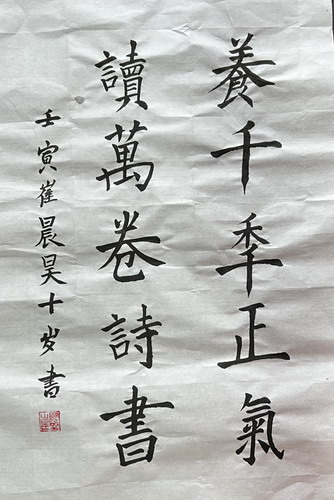 養千秊正氣
讀萬卷詩書
壬寅崔晨昊十岁書